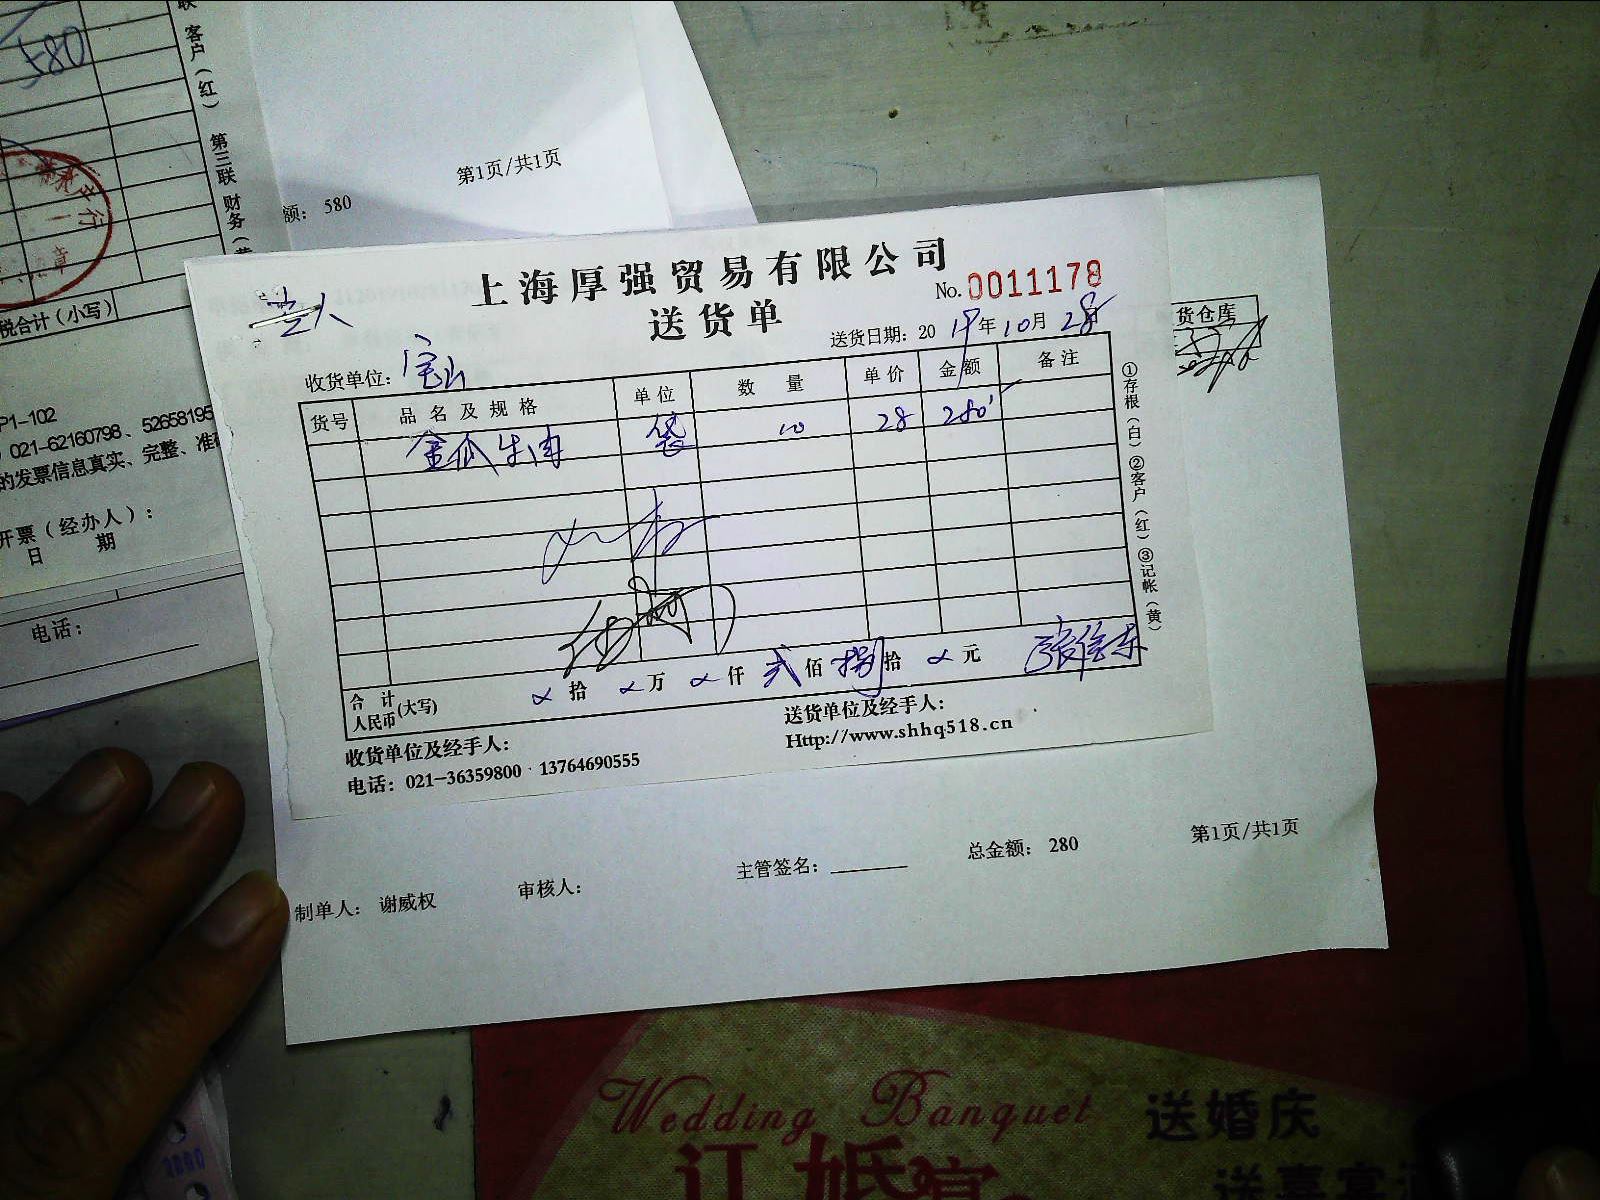 580
联 客户(红) 第三联 财务(黄
税合计(小写)
第1页/共1页
额: 580
P1-102
021-62160798、52658195
的发票信息真实、完整、准确
开票(经办人):
日 期
电话:
上海厚强贸易有限公司
No. 0011178
送货单
送货日期: 2019年10月28日
收货单位: 宝山
货仓库
货号 品名及规格 单位 数量 单价 金额 备注
金瓜牛肉 袋 10 28 280
①存根(白)②客户(红)③记帐(黄)
合计人民币(大写) 拾 万 仟 贰佰 捌拾 元
收货单位及经手人:
送货单位及经手人:
电话: 021-36359800 · 13764690555
Http://www.shhq518.cn
制单人: 谢威权 审核人: 主管签名: 总金额: 280 第1页/共1页
Wedding Banquet
送婚庆
订婚宴
送喜宴酒